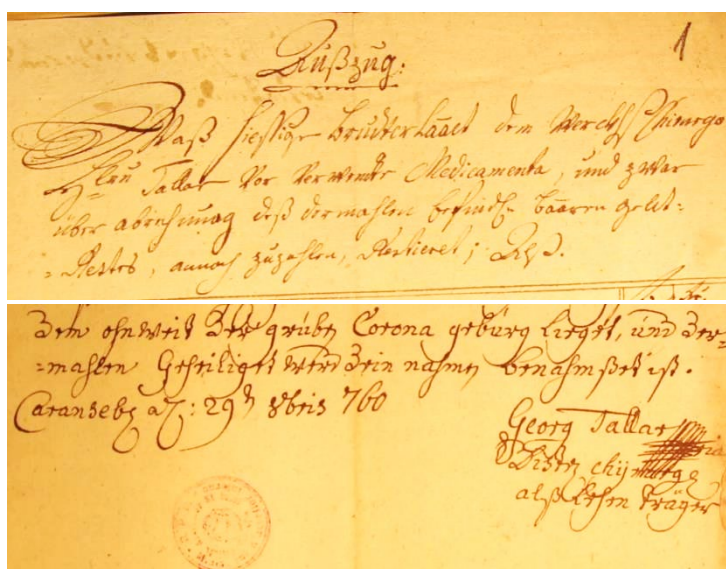 1
Außzug:
Waß hiessige Bruderlaaet dem Werckhs Chirurgo
Herrn Tallar vor verwendte Medicamenta, und zwar
über abrechnung deß dermahlen befindl. baaren geldt=
=Restes, annoch zuzahlen, Restieret;
dem ohnweit der gruben Corona gebürg lieget, und der=
=mahlen Geheiliget werd dein nahmen benahmset ist.
Caransebes 29 8bris 760
Georg Tallar
chyrurg
alß Lehen träger